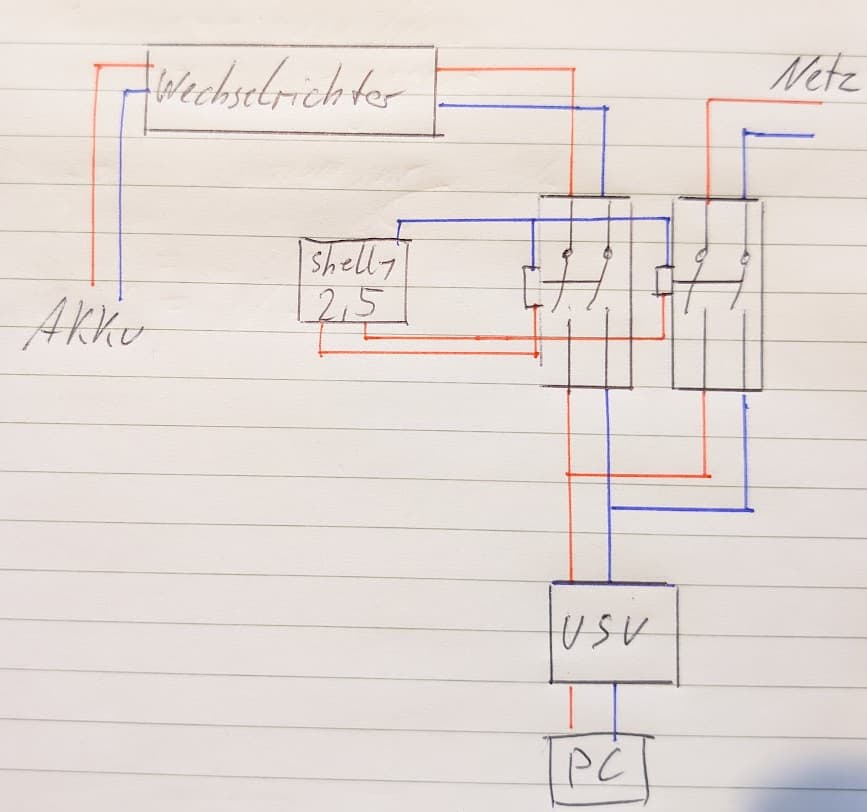 Wechselrichter
Netz
shelly
2,5
Akku
USV
PC